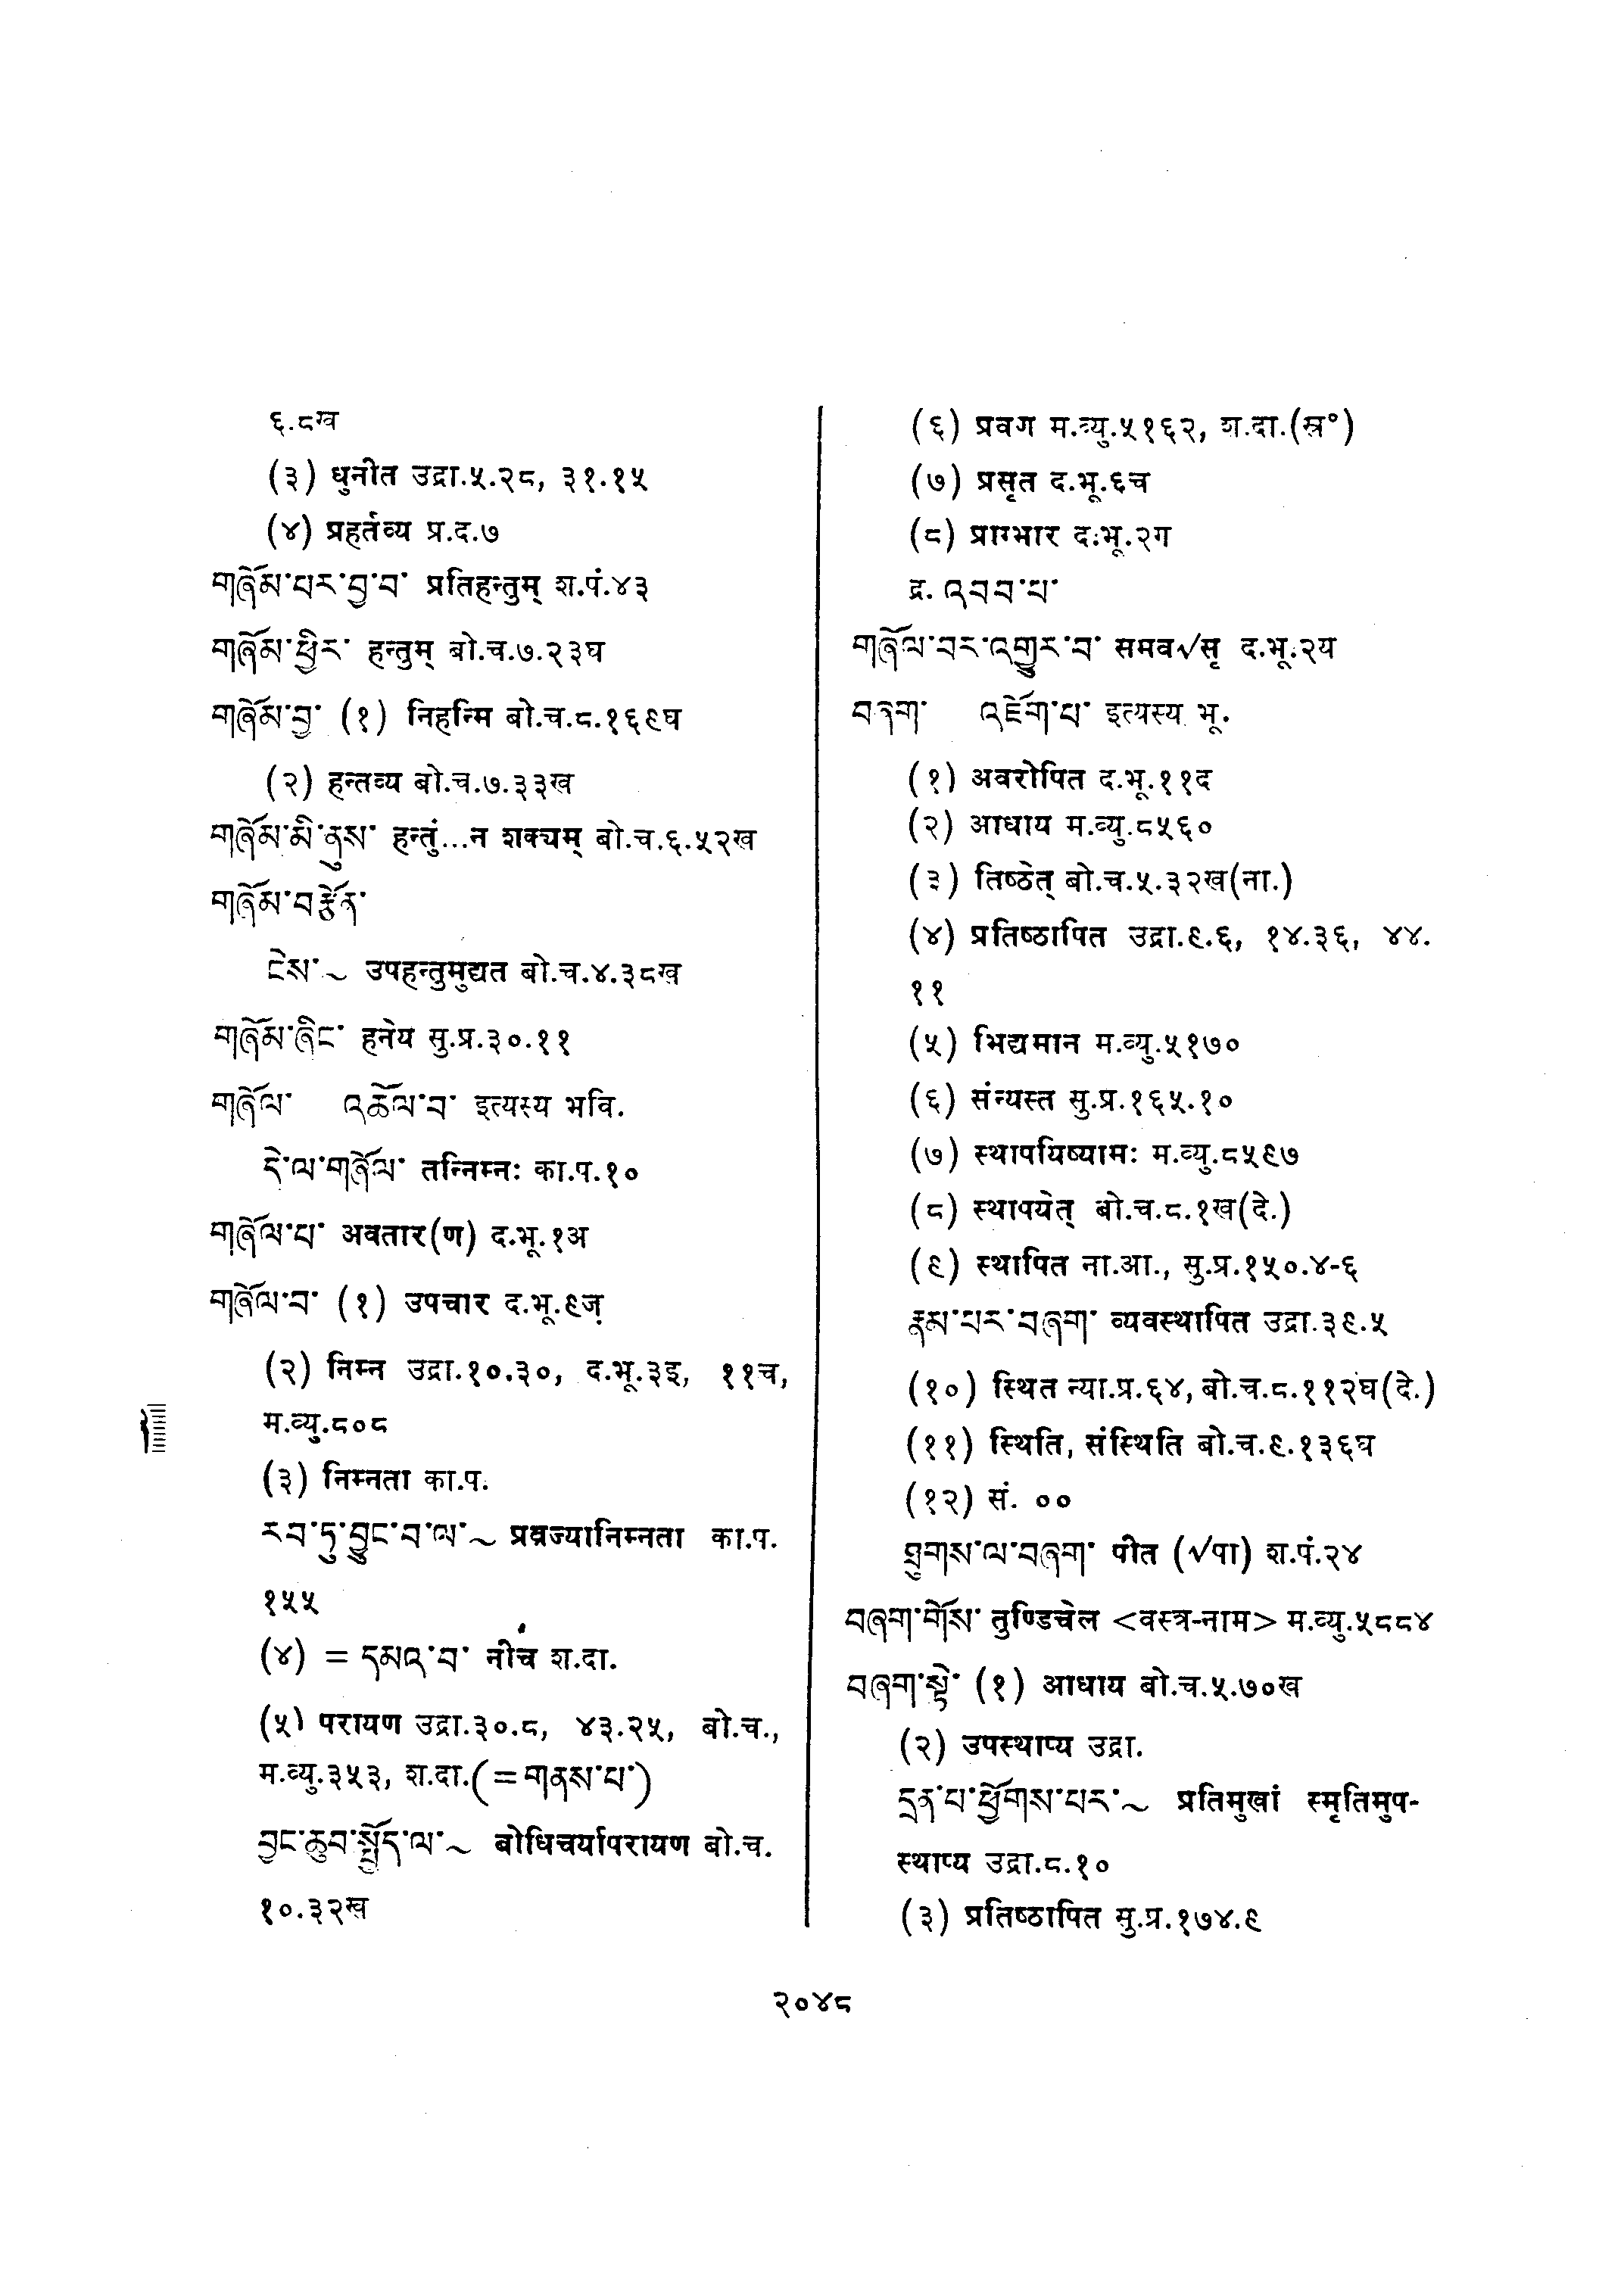 ६.८ख
(३) धुनीत उद्रा.५.२८, ३१.१५
(४) प्रहर्तव्य प्र.द.७
གཞོམ་པར་བྱ་བ་ प्रतिहन्तुम् श.पं.४३
གཞོམ་ཕྱིར་ हन्तुम् बो.च.७.२३घ
གཞོམ་བྱ་ (१) निहन्मि बो.च.८.१६९घ
(२) हन्तव्य बो.च.७.३३ख
གཞོམ་མི་ནུས་ हन्तुं...न शक्यम् बो.च.६.५२ख
གཞོམ་བརྩོན་
ངེས་~ उपहन्तुमुद्यत बो.च.४.३८ख
གཞོམ་ཞིང་ हनेय सु.प्र.३०.११
གཞོལ་ འཆོལ་བ་ इत्यस्य भवि.
དེ་ལ་གཞོལ་ तन्निम्नः का.प.१०
གཞོལ་པ་ अवतार(ण) द.भू.१अ
གཞོལ་བ་ (१) उपचार द.भू.९ज़
(२) निम्न उद्रा.१०.३०, द.भू.३इ, ११च,
म.व्यु.८०८
(३) निम्नता का.प.
རབ་ཏུ་བྱུང་བ་ལ་~ प्रव्रज्यानिम्नता का.प.
१५५
(४) = དམའ་བ་ नीचं श.दा.
(५) परायण उद्रा.३०.८, ४३.२५, बो.च.,
म.व्यु.३५३, श.दा.(=གནས་པ་)
བྱང་ཆུབ་སྤྱོད་ལ་~ बोधिचर्यापरायण बो.च.
१०.३२ख
(६) प्रवण म.व्यु.५१६२, श.दा.(स्र°)
(७) प्रसृत द.भू.६च
(८) प्राग्भार द.भू.२ग
द्र. འབབ་པ་
གཞོལ་བར་འགྱུར་བ་ समव√सृ द.भू.२य
བཞག་ འཇོག་པ་ इत्यस्य भू.
(१) अवरोपित द.भू.११द
(२) आधाय म.व्यु.८५६०
(३) तिष्ठेत् बो.च.५.३२ख(ना.)
(४) प्रतिष्ठापित उद्रा.९.६, १४.३६, ४४.
११
(५) भिद्यमान म.व्यु.५१७०
(६) संन्यस्त सु.प्र.१६५.१०
(७) स्थापयिष्यामः म.व्यु.८५९७
(८) स्थापयेत् बो.च.८.१ख(दे.)
(९) स्थापित ना.आ., सु.प्र.१५०.४-६
རྣམ་པར་བཞག་ व्यवस्थापित उद्रा.३९.५
(१०) स्थित न्या.प्र.६४, बो.च.८.११२घ(दे.)
(११) स्थिति, संस्थिति बो.च.९.१३६घ
(१२) सं. ००
ཐུགས་ལ་བཞག་ पीत (√पा) श.पं.२४
བཞག་གོས་ तुण्डिचेल <वस्त्र-नाम> म.व्यु.५८८४
བཞག་སྟེ་ (१) आधाय बो.च.५.७०ख
(२) उपस्थाप्य उद्रा.
དྲན་པ་ཕྱོགས་པར་~ प्रतिमुखां स्मृतिमुप-
स्थाप्य उद्रा.८.१०
(३) प्रतिष्ठापित सु.प्र.१७४.९
२०४८